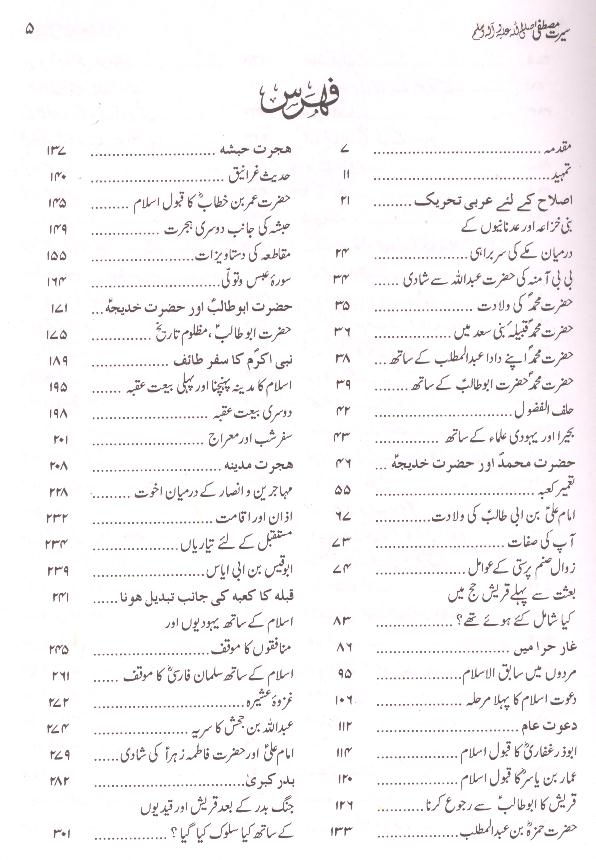 سیرت مصطفیٰ صلی اللہ علیہ وآلہ وسلم
۵
فہرس
مقدمہ .......................... ۷
تمہید .......................... ۱۱
اصلاح کے لئے عربی تحریک ......... ۲۱
بنی خزاعہ اور عدنانیوں کے
درمیان مکے کی سربراہی ............ ۲۴
بی بی آمنہ کی حضرت عبداللہ سے شادی .. ۳۴
حضرت محمدؐ کی ولادت ............. ۳۵
حضرت محمدؐ قبیلہ بنی سعد میں ......... ۳۶
حضرت محمدؐ اپنے دادا عبدالمطلب کے ساتھ ... ۳۸
حضرت محمدؐ حضرت ابوطالبؑ کے ساتھ ...... ۳۹
حلف الفضول .................... ۴۲
بحیرا اور یہودی علماء کے ساتھ ........... ۴۳
حضرت محمدؐ اور حضرت خدیجہؑ ... ۴۶
تعمیر کعبہ ....................... ۵۵
امام علیؑ بن ابی طالبؑ کی ولادت ......... ۶۷
آپ کی صفات ................... ۷۳
زوال صنم پرستی کے عوامل ........... ۷۴
بعثت سے پہلے قریش حج میں
کیا شامل کئے ہوئے تھے؟ .......... ۸۳
غار حرا میں ..................... ۸۶
مردوں میں سابق الاسلام ........... ۹۵
دعوت اسلام کا پہلا مرحلہ ............ ۱۰۶
دعوت عام ..................... ۱۱۲
ابوذر غفاریؓ کا قبول اسلام .......... ۱۱۴
عمار بن یاسرؓ کا قبول اسلام ........... ۱۲۰
قریش کا ابوطالبؑ سے رجوع کرنا ....... ۱۲۶
حضرت حمزہؓ بن عبدالمطلب ......... ۱۳۳
ہجرت حبشہ .................... ۱۳۷
حدیث غرانیق ................... ۱۴۰
حضرت عمر بن خطابؓ کا قبول اسلام ...... ۱۴۵
حبشہ کی جانب دوسری ہجرت ......... ۱۴۹
مقاطعہ کی دستاویزات .............. ۱۵۵
سورۂ عبس وتولّٰی .................. ۱۶۴
حضرت ابوطالبؑ اور حضرت خدیجہؑ... ۱۷۱
حضرت ابوطالبؑ، مظلوم تاریخ ......... ۱۷۵
نبی اکرمؐ کا سفر طائف ........... ۱۸۹
اسلام کا مدینہ پہنچنا اور پہلی بیعت عقبہ ..... ۱۹۵
دوسری بیعت عقبہ ................ ۱۹۸
سفر شب اور معراج ............... ۲۰۱
ہجرت مدینہ .................... ۲۰۸
مہاجرین و انصار کے درمیان اخوت ....... ۲۲۸
اذان اور اقامت ................. ۲۳۲
مستقبل کے لئے تیاریاں ............ ۲۳۴
ابوقیس بن ابی ایاس ............... ۲۳۹
قبلہ کا کعبہ کی جانب تبدیل ہونا ...... ۲۴۱
اسلام کے ساتھ یہودیوں اور
منافقوں کا موقف ................ ۲۴۵
اسلام کے ساتھ سلمان فارسیؓ کا موقف .... ۲۶۱
غزوۂ عشیرہ ..................... ۲۷۲
عبداللہ بن جحش کا سریہ ............. ۲۷۴
امام علیؑ اور حضرت فاطمہ زہراؑ کی شادی ..... ۲۷۹
بدر کبریٰ ...................... ۲۸۲
جنگ بدر کے بعد قریش اور قیدیوں
کے ساتھ کیا سلوک کیا گیا؟ ........... ۳۰۱